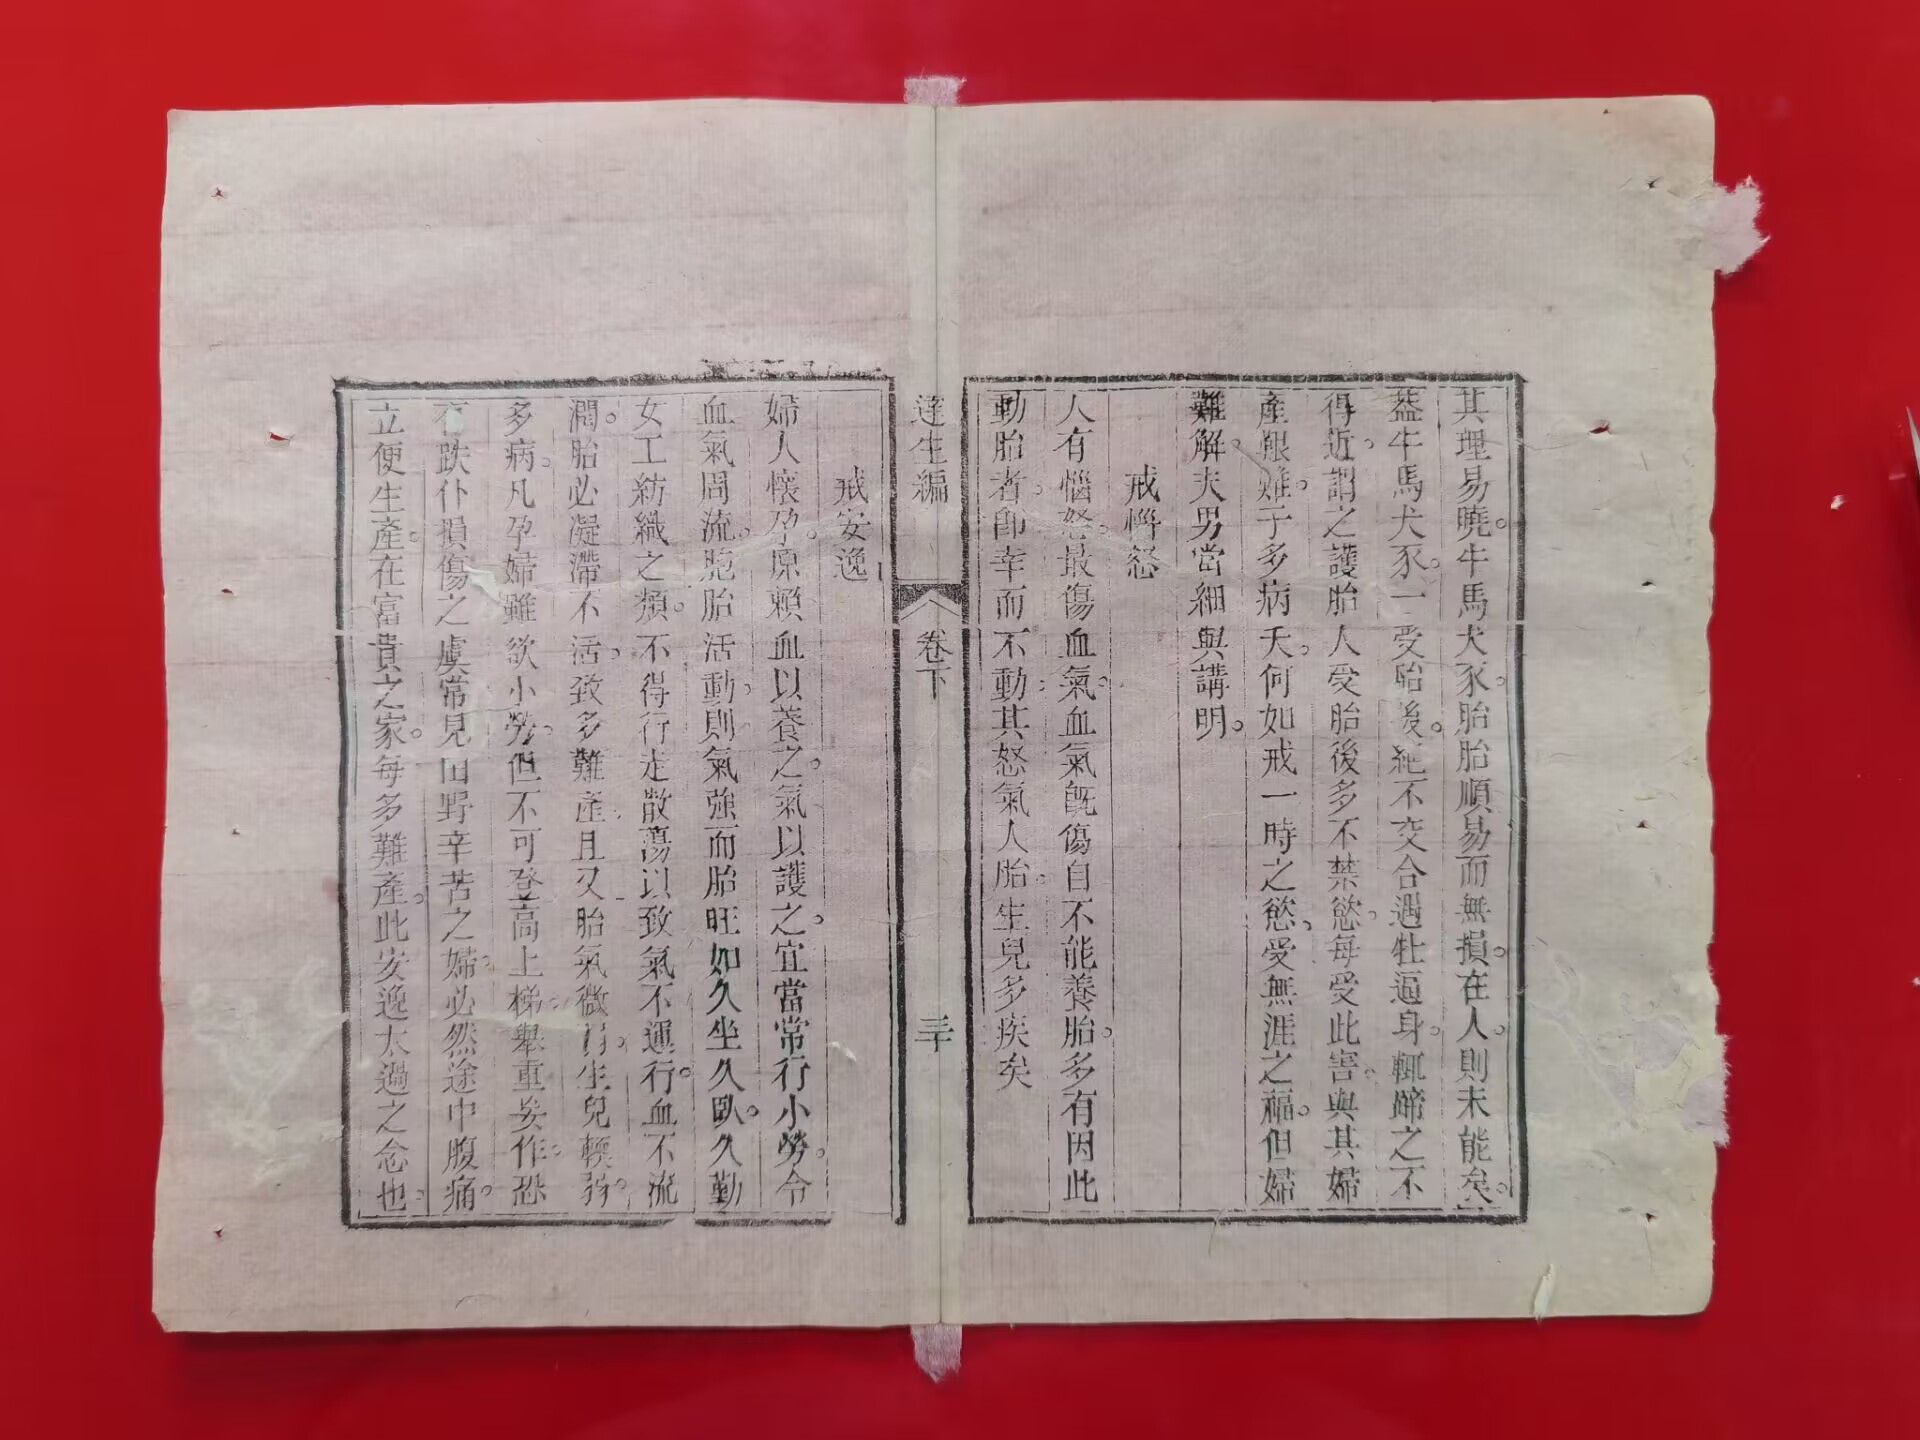 其理易曉。牛馬犬豕。胎胎順易而無損。在人。則未能矣。
蓋牛馬犬豕。一受胎後。絕不交合遇牡逼身。輒蹄之不
得近。謂之護胎人受胎後多不禁慾。每受此害。與其婦
產艱難。子多病夭。何如戒一時之慾。受無涯之福。但婦
難解。夫男當細與講明。
戒惱怒
人有惱怒。最傷血氣。血氣旣傷自不能養胎。多有因此
動胎者。卽幸而不動。其怒氣入胎。生兒多疾矣
達生編
卷下
三十
戒安逸
婦人懷孕。原賴血以養之。氣以護之。宜當常行小勞。令
血氣周流。胞胎活動。則氣強而胎旺如久坐久臥。久勤
女工紡織之類。不得行走散蕩以致氣不運行。血不流
潤。胎必凝滯不活。致多難產。且又胎氣微。生兒輭弱。
多病。凡孕婦雖欲小勞。但不可登高上梯。舉重妄作。恐
有跌仆損傷之虞常見田野辛苦之婦。必然途中腹痛。
立便生產。在富貴之家。每多難產。此安逸太過之念也。